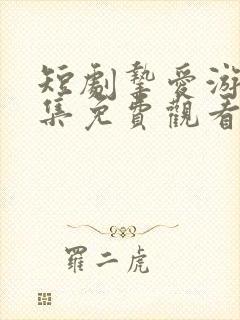 短劇摯愛游
集免費觀看
羅二虎